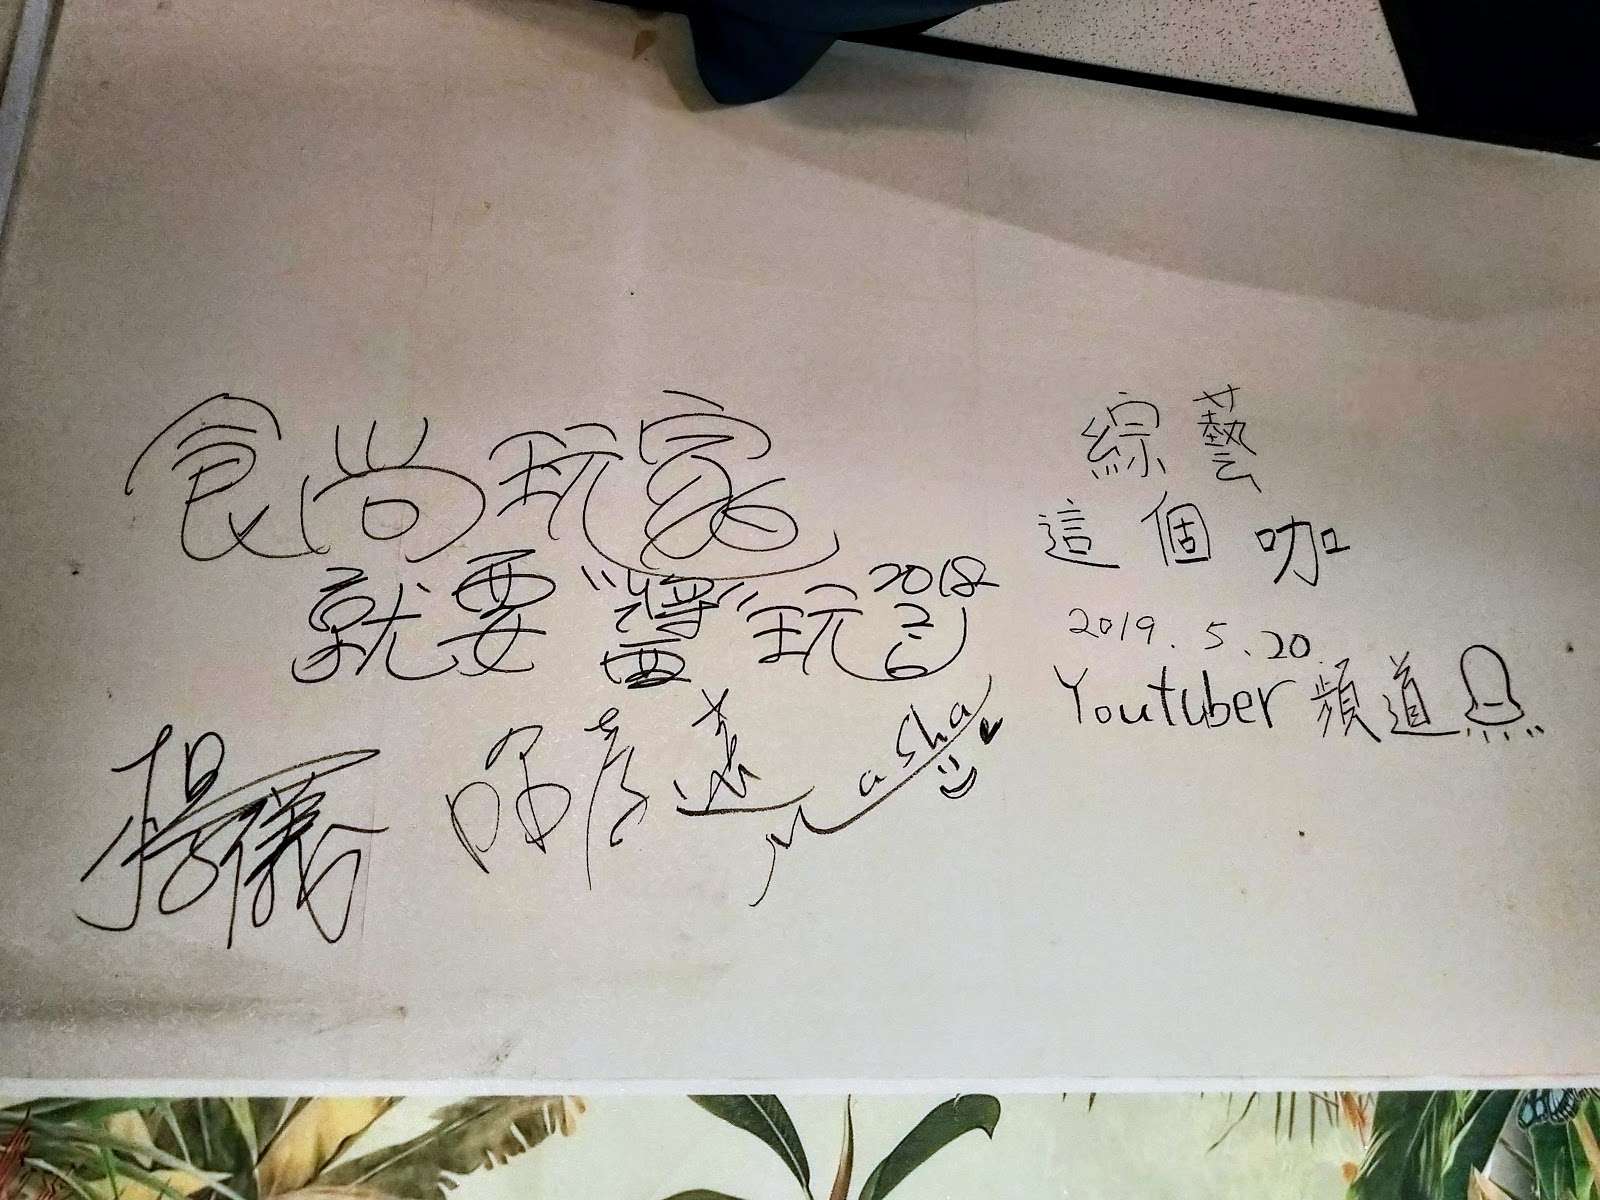 食尚玩家
就要"醬"玩 2018
2.6
楊
Masha
綜藝
這個咖
2019.5.20.
Youtuber 頻道